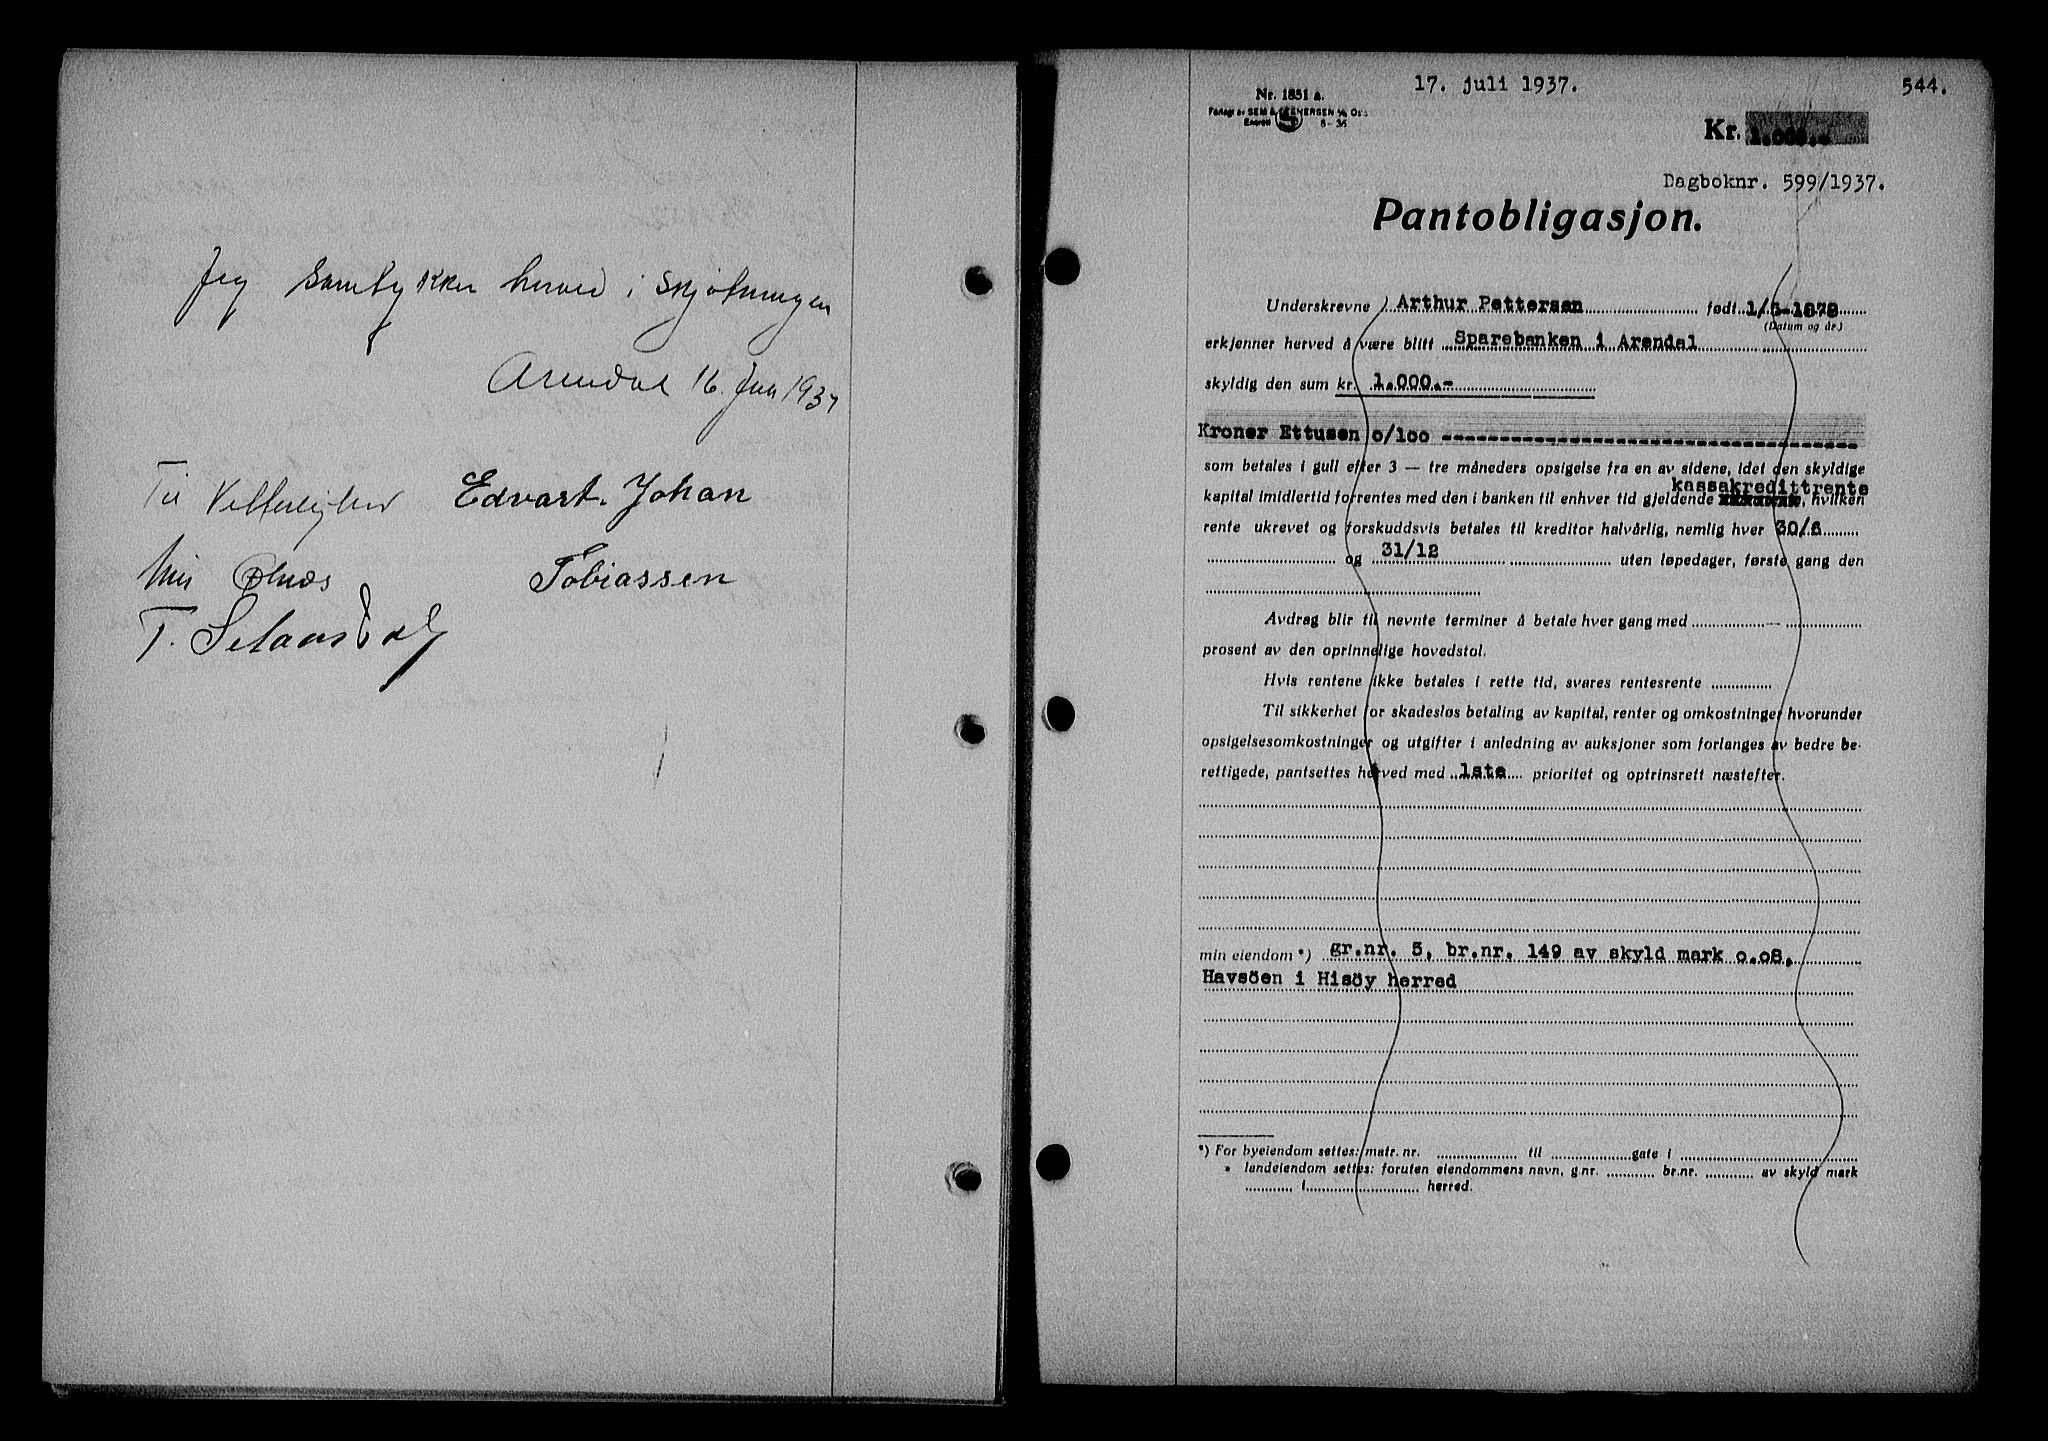 Jeg samtykker herved i skjøtningen
Arendal 16. Juni 1937
Til Vitterlighet Edvart Johan
Tobiassen
T.
17. juli 1937.
544.
Nr. 1851 a.
Forlagt av SEM & STENERSEN A/S Oslo
Enerett 8-36
Kr. 1.000.-
Dagboknr. 599/1937.
Pantobligasjon.
Underskrevne ) Arthur Pettersen født 1/5-1878
(Datum og år.)
erkjenner herved å være blitt Sparebanken i Arendal
skyldig den sum kr. 1.000.-
Kroner Ettusen o/100
som betales i gull efter 3 — tre måneders opsigelse fra en av sidene, idet den skyldige
kassakredittrente
kapital imidlertid forrentes med den i banken til enhver tid gjeldende , hvilken
rente ukrevet og forskuddsvis betales til kreditor halvårlig, nemlig hver 30/6
og 31/12 uten løpedager, første gang den
Avdrag blir til nevnte terminer å betale hver gang med —
prosent av den oprinnelige hovedstol.
Hvis rentene ikke betales i rette tid, svares rentesrente
Til sikkerhet for skadesløs betaling av kapital, renter og omkostninger hvorunder
opsigelsesomkostninger og utgifter i anledning av auksjoner som forlanges av bedre be-
rettigede, pantsettes herved med 1ste prioritet og optrinsrett næstefter.
min eiendom *) gr.nr. 5, br.nr. 149 av skyld mark o.o8,
Havsöen i Hisöy herred
*) For byeiendom settes: matr. nr. til gate i
" landeiendom settes: foruten eiendommens navn, g.nr. br.nr. av skyld mark
i herred.